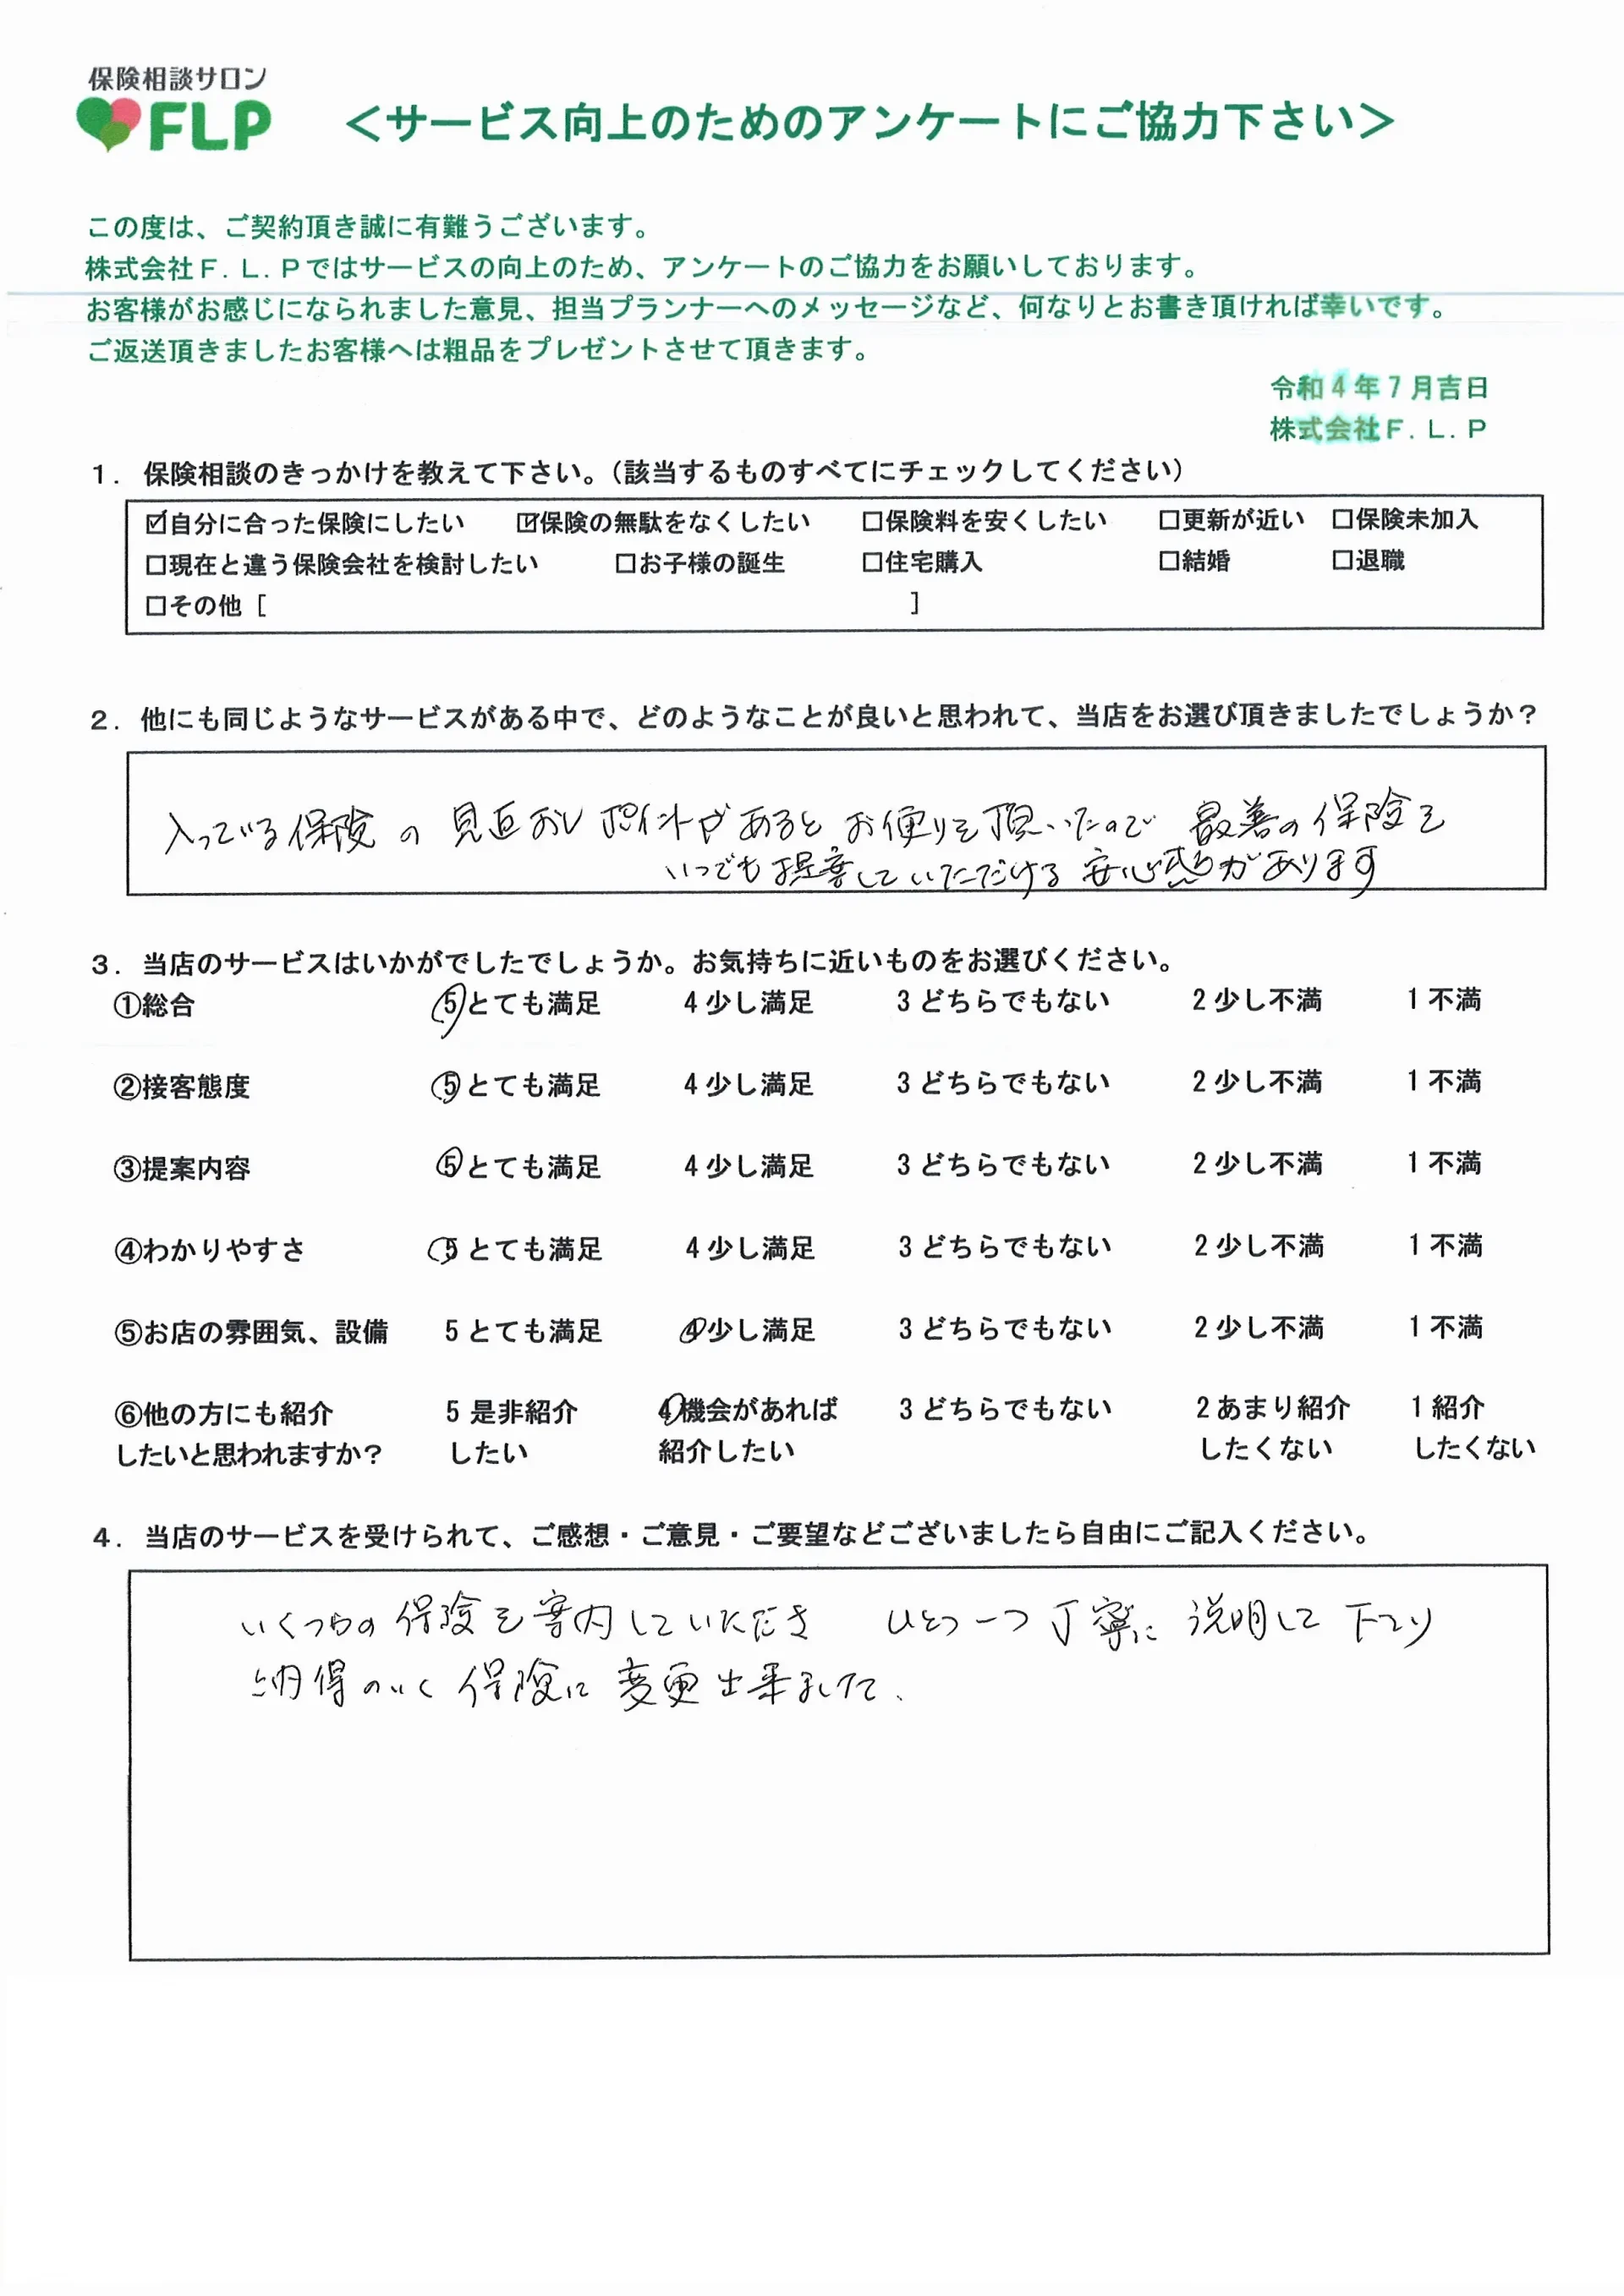 保険相談サロン
FLP
＜サービス向上のためのアンケートにご協力下さい＞
この度は、ご契約頂き誠に有難うございます。
株式会社F.L.Pではサービスの向上のため、アンケートのご協力をお願いしております。
お客様がお感じになられました意見、担当プランナーへのメッセージなど、何なりとお書き頂ければ幸いです。
ご返送頂きましたお客様へは粗品をプレゼントさせて頂きます。
令和4年7月吉日
株式会社F.L.P
1．保険相談のきっかけを教えて下さい。（該当するものすべてにチェックしてください）
☑自分に合った保険にしたい ☑保険の無駄をなくしたい □保険料を安くしたい □更新が近い □保険未加入
□現在と違う保険会社を検討したい □お子様の誕生 □住宅購入 □結婚 □退職
□その他［ ］
2．他にも同じようなサービスがある中で、どのようなことが良いと思われて、当店をお選び頂きましたでしょうか？
入っている保険の見直おしポイントがあるとお便りを頂いたので 最善の保険を
いつでも提案していただける安心感があります
3．当店のサービスはいかがでしたでしょうか。お気持ちに近いものをお選びください。
①総合 5とても満足 4少し満足 3どちらでもない 2少し不満 1不満
②接客態度 5とても満足 4少し満足 3どちらでもない 2少し不満 1不満
③提案内容 5とても満足 4少し満足 3どちらでもない 2少し不満 1不満
④わかりやすさ 5とても満足 4少し満足 3どちらでもない 2少し不満 1不満
⑤お店の雰囲気、設備 5とても満足 4少し満足 3どちらでもない 2少し不満 1不満
⑥他の方にも紹介 5是非紹介 4機会があれば 3どちらでもない 2あまり紹介 1紹介
したいと思われますか？ したい 紹介したい したくない したくない
4．当店のサービスを受けられて、ご感想・ご意見・ご要望などございましたら自由にご記入ください。
いくつかの保険を案内していただき ひとつ一つ丁寧に説明して下さり
納得のいく保険に変更出来ました、